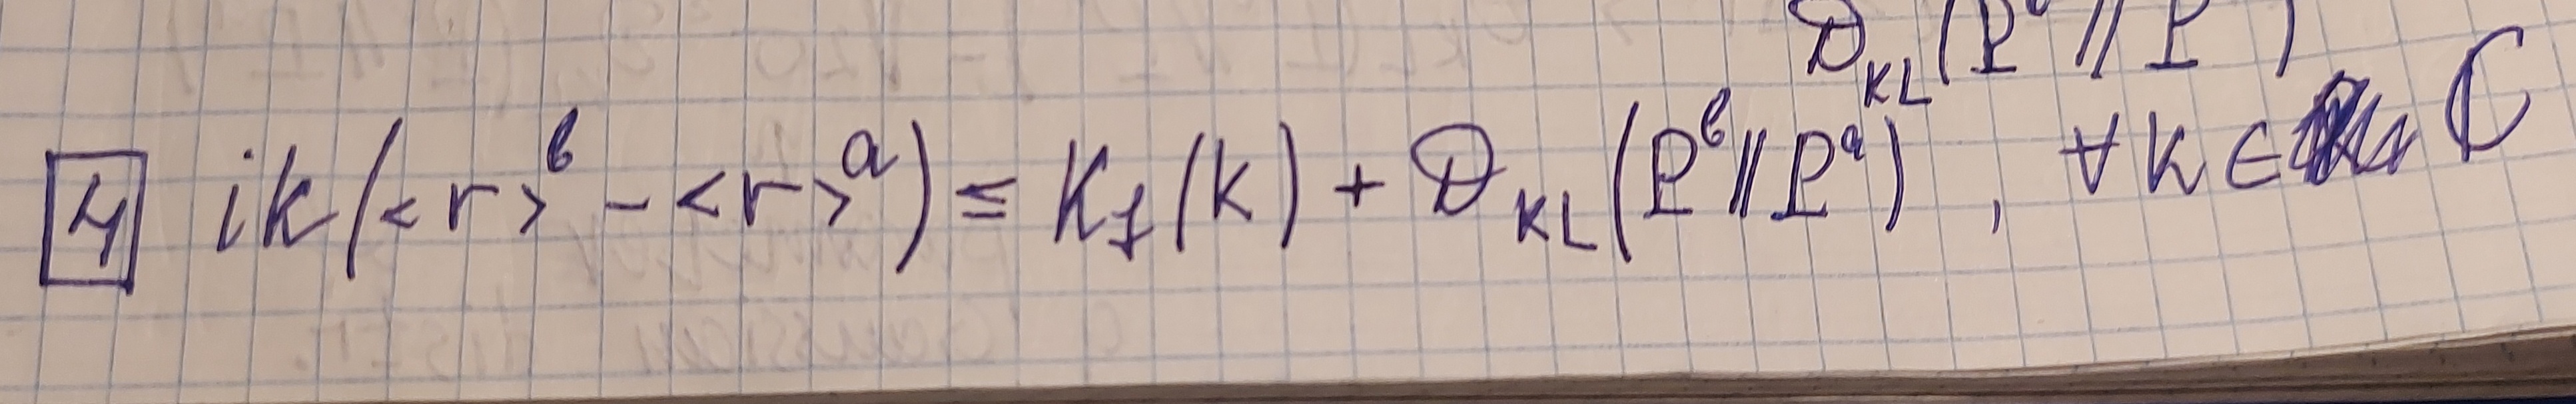 D_{KL}(P^b // P )
[4] ik(<r>^b - <r>^a) ≤ K_1(k) + D_{KL}(P^b // P^a), ∀ k ∈ ℂ